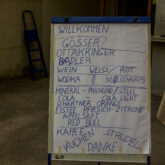 WILLKOMMEN
GÖSSER/
OTTAKRINGER
RADLER
WEIN WEISS/ROT
WODKA NUSSSCHNAPS
MINERAL - PRICKEND/STILL
COLA COLA LIGHT
EISTEE PFIRSICH-ZITRONE
APFELSAFT
RED BULL
KAFFEE
KUCHEN STRUDEL
DANKE